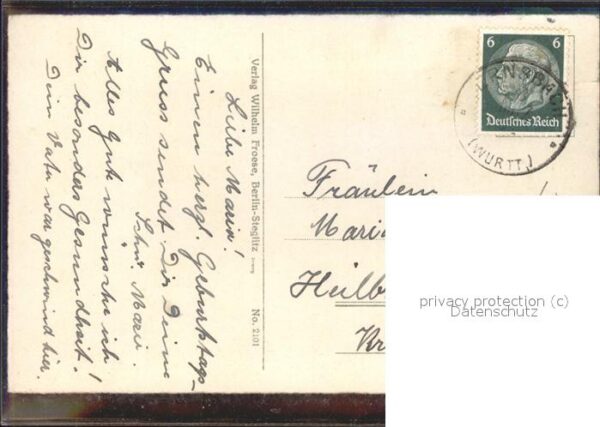 Liebe Marie!
Einen herzl. Geburtstags-
Gruss sendet Dir Deine
Schw. Marie.
Alles Gute wünsche ich
Dir besonders Gesundheit!
Dein Vater war geschwind hier.
Verlag Wilhelm Froese, Berlin-Steglitz
No. 2101
6 6
Deutsches Reich
(WÜRTT.)
Fräulein
Mari
Heilb
Kr
privacy protection (c)
Datenschutz